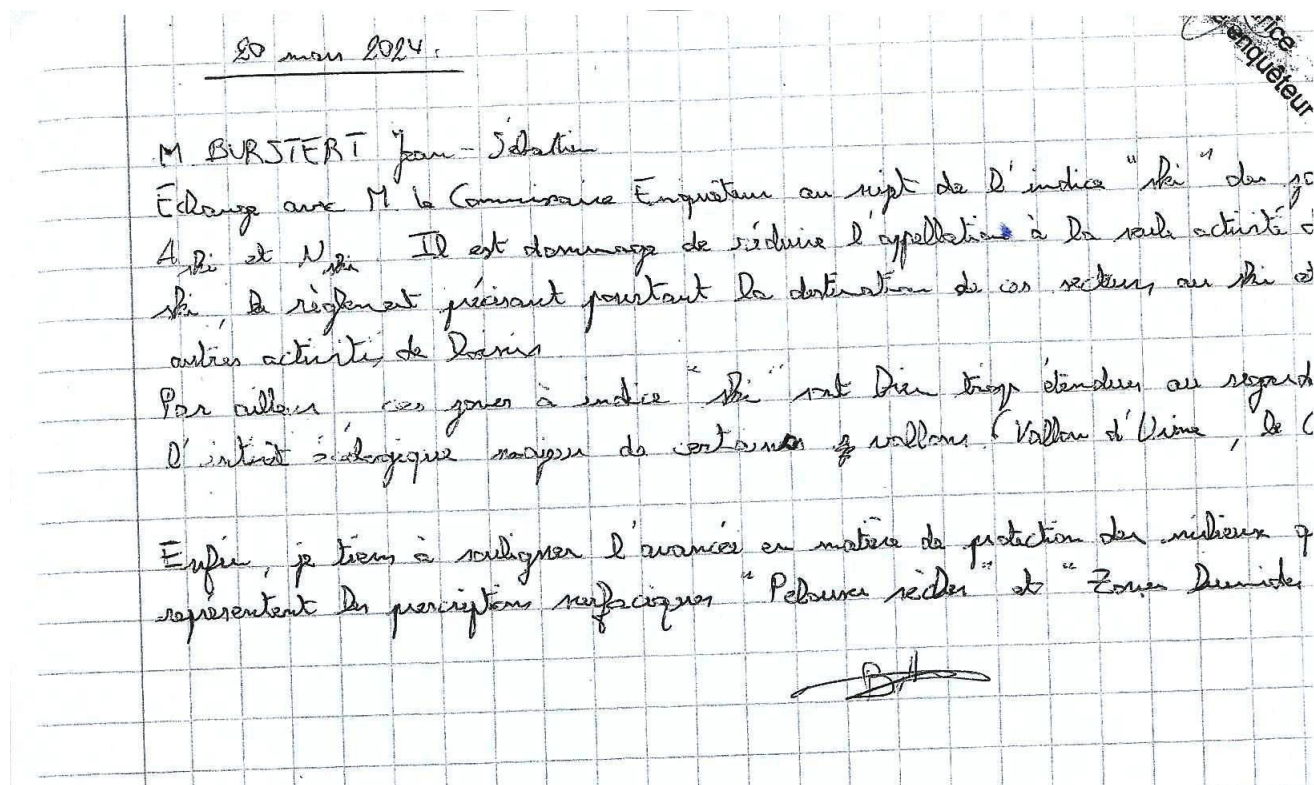 20 mars 2024.
rice
enquêteur
M BURSTERT Jean-Sébastien
Echange avec M le Commissaire Enquêteur au sujet de l'indice "ski" des
A ski et N ski. Il est dommage de réduire l'appellation à la seule activité
ski, le règlement précisant pourtant la destination de ces secteurs au ski et
autres activités de loisirs
Par ailleurs ces zones à indice "ski" sont bien trop étendues au regard
l'intérêt écologique majeur de certains vallons (Vallon d', le
Enfin, je tiens à souligner l'avancée en matière de protection des milieux
représentent les prescriptions surfaciques "Pelouses sèches" et "Zones humides